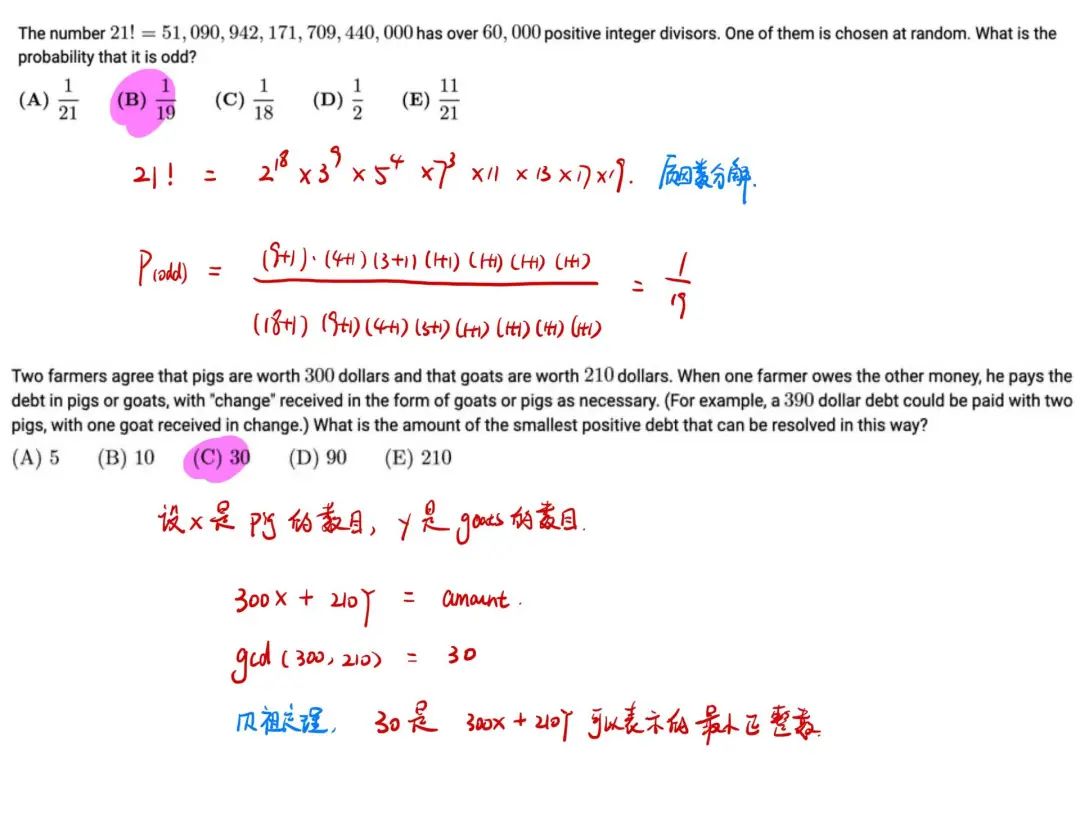 The number 21! = 51, 090, 942, 171, 709, 440, 000 has over 60, 000 positive integer divisors. One of them is chosen at random. What is the
probability that it is odd?
(A) 1/21 (B) 1/19 (C) 1/18 (D) 1/2 (E) 11/21
21! = 2^18 × 3^9 × 5^4 × 7^3 × 11 × 13 × 17 × 19. 质因数分解.
P(odd) = (9+1)·(4+1)(3+1)(1+1)(1+1)(1+1)(1+1) / (18+1)(9+1)(4+1)(3+1)(1+1)(1+1)(1+1)(1+1) = 1/19
Two farmers agree that pigs are worth 300 dollars and that goats are worth 210 dollars. When one farmer owes the other money, he pays the
debt in pigs or goats, with "change" received in the form of goats or pigs as necessary. (For example, a 390 dollar debt could be paid with two
pigs, with one goat received in change.) What is the amount of the smallest positive debt that can be resolved in this way?
(A) 5 (B) 10 (C) 30 (D) 90 (E) 210
设 x 是 pig 的数目, y 是 goats 的数目.
300x + 210y = amount.
gcd (300, 210) = 30
贝祖定理, 30 是 300x + 210y 可以表示的最小正整数.